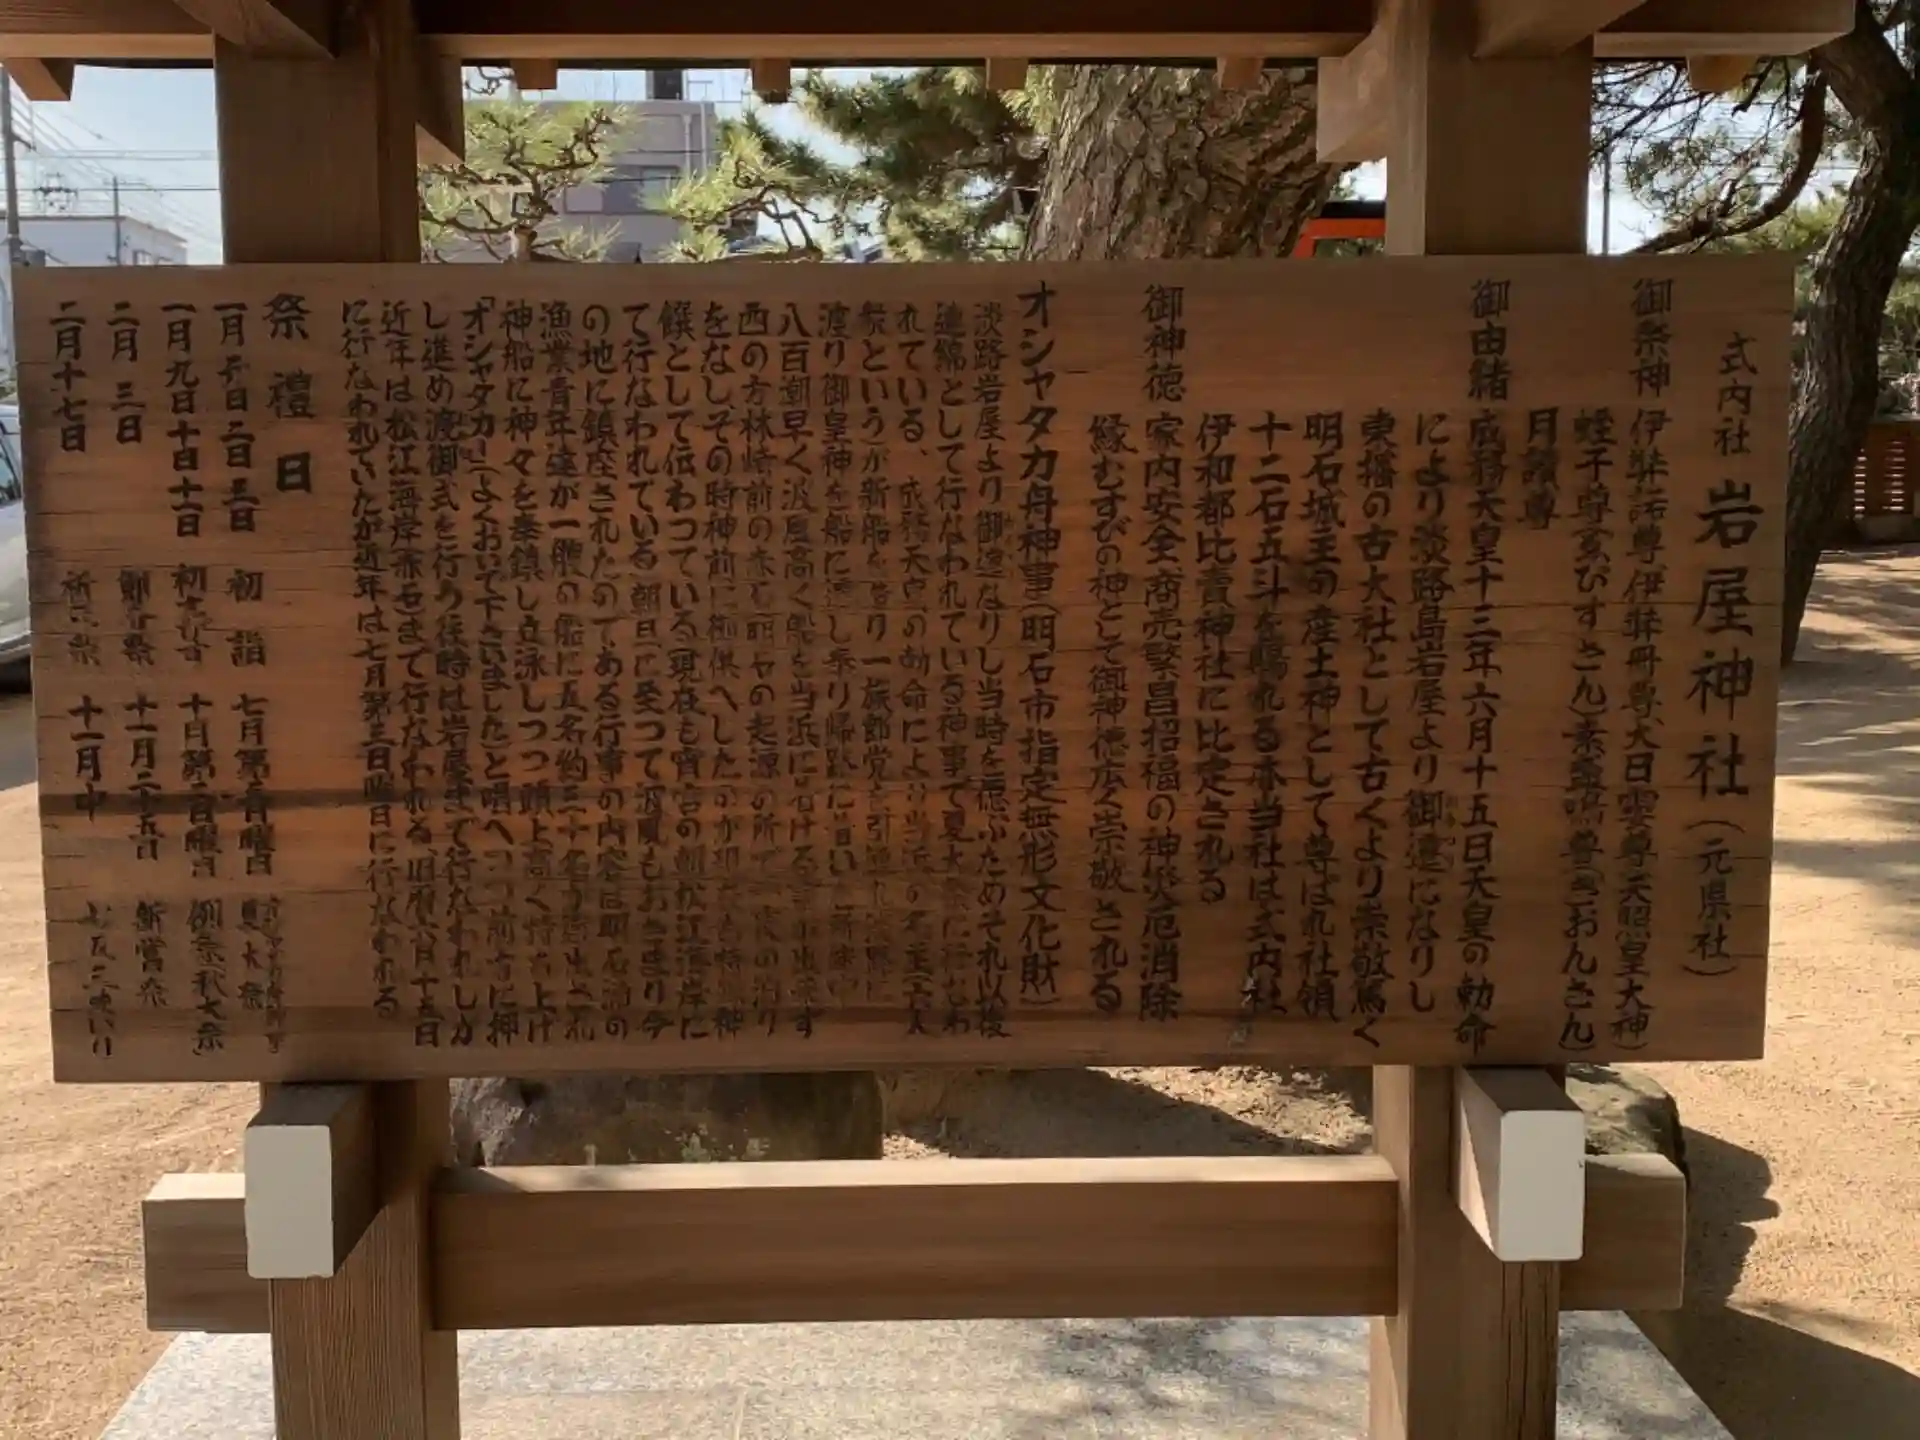 式内社 岩屋神社(元県社)
御祭神 伊弉諾尊 伊弉冊尊 大日孁尊(天照皇大神)
蛭子尊(ゑびすさん)素盞鳴尊(ぎおんさん)
月読尊
御由緒 成務天皇十三年六月十五日天皇の勅命
により淡路島岩屋より御遷になりし
東播の古大社として古くより崇敬篤く
明石城主の産土神として尊ばれ社領
十二石五斗を賜れる亦当社は式内社
伊和都比売神社に比定される
御神徳 家内安全商売繁昌招福の神災厄消除
縁むすびの神として御神徳広く崇敬される
オシャタカ舟神事(明石市指定無形文化財)
淡路岩屋より御遷なりし当時を偲ぶためそれ以後
連綿として行なわれている神事で夏大祭に行なわ
れている、成務天皇の勅命により当浜の名主(六人
祭という)が新船を造り一族郎党を引連れ淡路に
渡り御皇神を船に遷し奉り帰路に着い
八百潮早く波風高く船を当浜に着ける事が出来ず
西の方林崎前の赤石
をなしその時神前に御供へした
饌として伝わつている(現在も宵宮の朝松江海岸に
て行なわれている)朝日に至つて波風もおさまり今
の地に鎮座されたのである行事の内容は明石浦の
漁業青年達が一艘の船に五名約三十名
神船に神々を奉鎮し立泳しつつ頭上高く持ち上げ
「オシャタカー」(よくおいで下さいました)と唱へつつ前方に押
し進め渡御式を行う往時は岩屋まで行なわれしが
近年は松江海岸(赤石)まで行なわれる旧暦六月十五日
に行なわれていたが近年は七月第三日曜日に行なわれる
祭禮日
一月元日二日三日 初詣 七月第三日曜日 夏大祭
一月九日十日十一日 初ゑびす 十月第二日曜日 例祭(秋大祭)
二月三日 節分祭 十一月二十五日 新嘗祭
二月十七日 祈年祭 十一月中 七五三